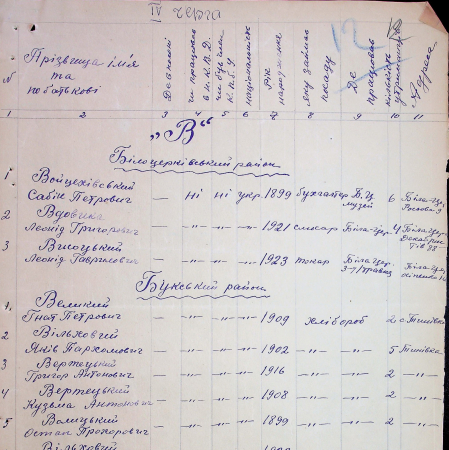 IV черга
№ Прізвища ім'я та по батькові
Де в полоні
чи працював в Н.К.В.Д.
чи був член К.П.б.У
національність
Рік народження
яку займав посаду
Де працював
кількість утриманців
Адреса
1 2 3 4 5 6 7 8 9 10 11
„В“
Білоцерківський район
1 Войцехівський
Сабін Петрович — ні ні укр. 1899 бухгалтер Б.Ц. музей 6 Біла-Цер.
2 Вдовика
Леонід Григорович — -"- -"- -"- 1921 слюсар Біла-Цер. 4 Біла-Цер.
3 Висоцький
Леонід Гаврилович — -"- -"- -"- 1923 токар Біла-Цер. Біла-Цер.
Букський район
1. Великий
Гнат Петрович — -"- -"- -"- 1909 хлібороб -"- 2 с. Тинівка
2 Вільховий
Яків Пархомович — -"- -"- -"- 1902 -"- -"- 5 Тинівка
3 Вертецький
Григор Антонович — -"- -"- -"- 1916 -"- -"- 2 -"-
4 Вертецький
Кузьма Антонович — -"- -"- -"- 1908 -"- -"- 2 -"-
5 Валицький
Остап Прохорович — -"- -"- -"- 1899 -"- -"- 2 -"-